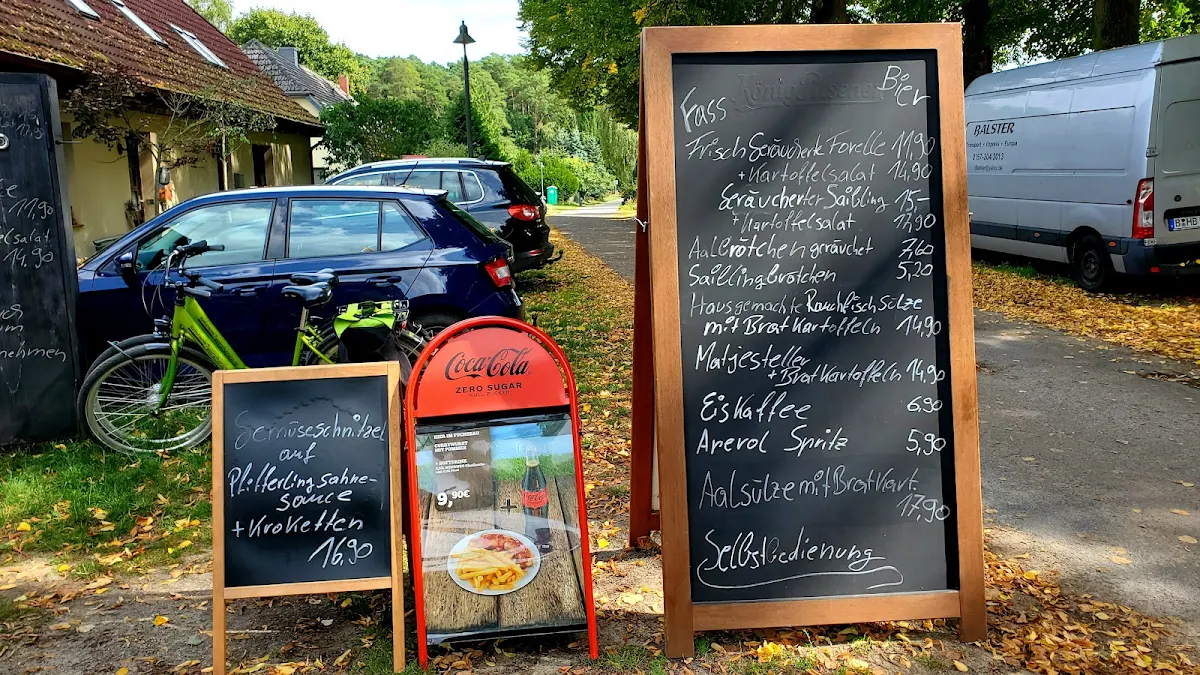 11,90
14,90
nehmen
Gemüseschnitzel
auf
Pfifferling sahne-
sauce
+ Kroketten
16,90
Coca-Cola
ZERO SUGAR
NULL ZUCKER
HIER IM FUCHSBAU
CURRYWURST
MIT POMMES
+ SOFTDRINK
9,90€
+
König Pilsener
Fass Bier
Frisch Geräucherte Forelle 11,90
+ Kartoffelsalat 14,90
Geräucherter Saibling 15,-
+ Kartoffelsalat 17,90
Aal Brötchen geräuchert 7,60
Saiblingbrötchen 5,20
Hausgemachte Rauchfisch Sülze
mit Brat Kartoffeln 14,90
Matjesteller
+ Brat Kartoffeln 14,90
Eiskaffee 6,90
Arerol Spritz 5,90
Aalsülze mit Bratkart.
17,90
Selbstbedienung
BALSTER
Transport • Express • Europa
B HB